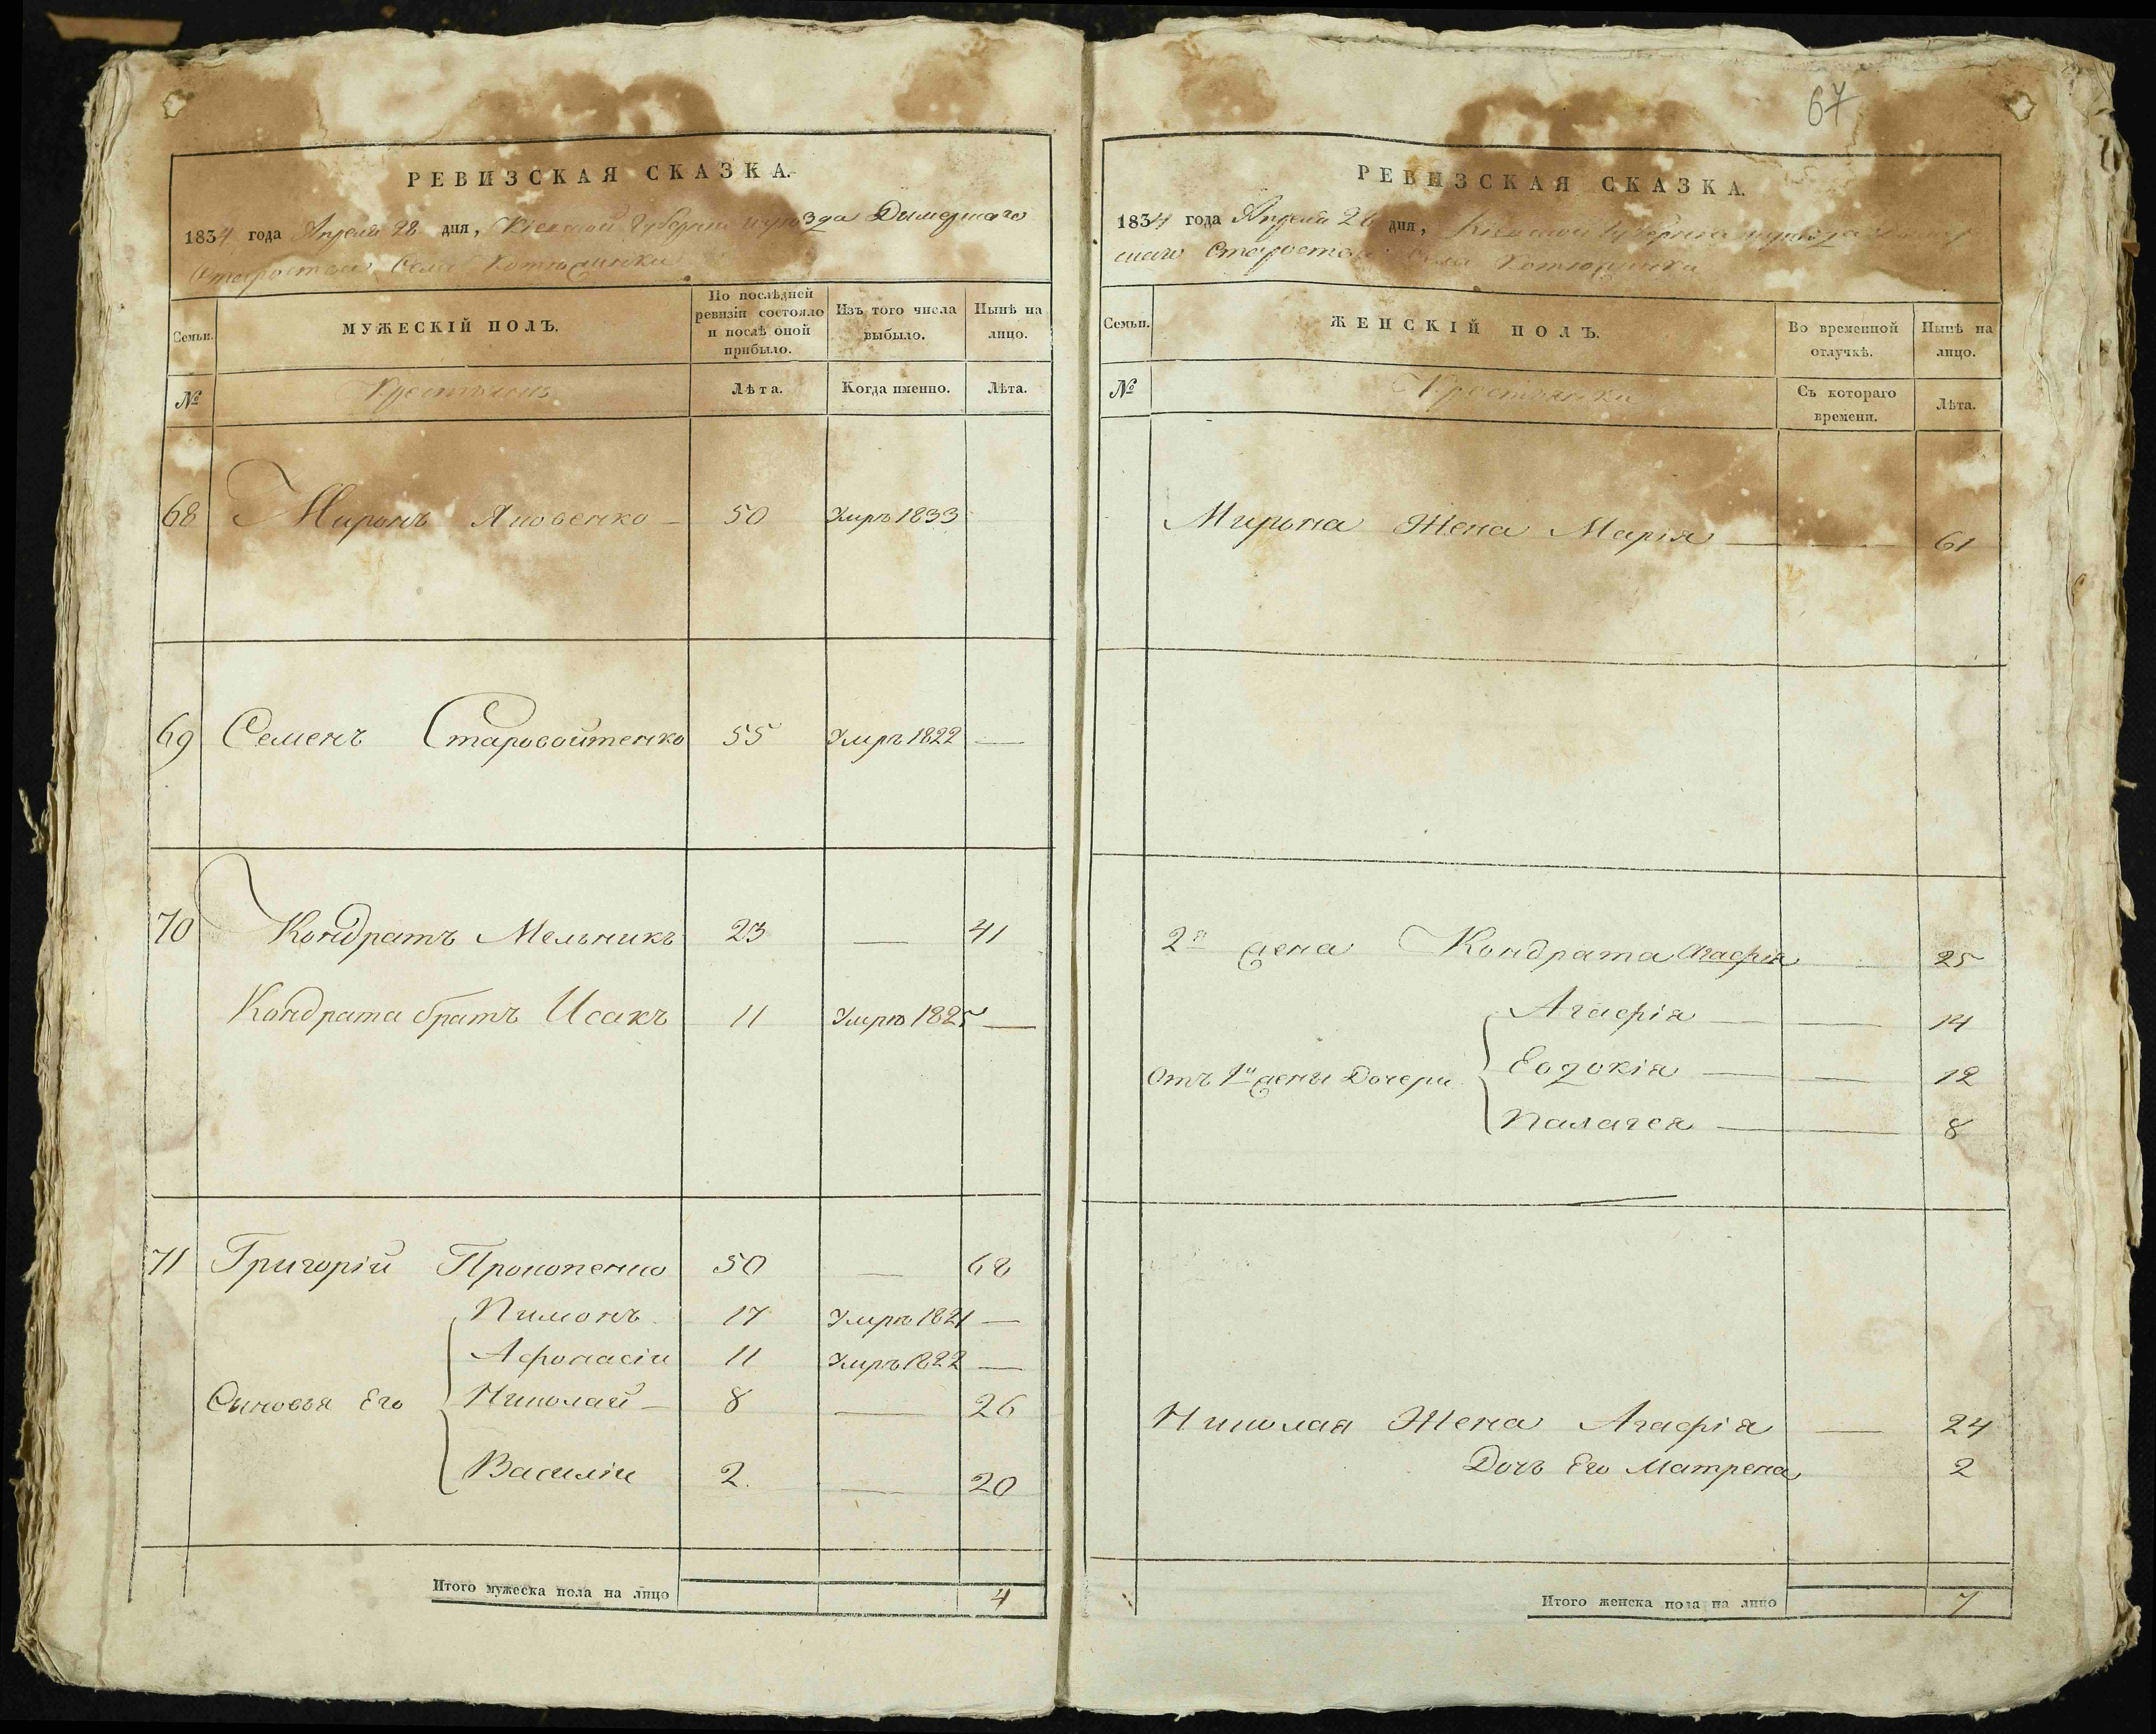 67
РЕВИЗСКАЯ СКАЗКА.
1834 года Апреля 28 дня, Киевской Губернии и уезда Димерскаго
Староства Села
Семьи.
МУЖЕСКІЙ ПОЛЪ.
По послѣдней ревизіи состояло и послѣ оной прибыло.
Изъ того числа выбыло.
Нынѣ на лицо.
№
Крестьянъ
Лѣта.
Когда именно.
Лѣта.
68 Миронъ Яковенко 50 Умръ 1833
69 Семенъ Старовойтенко 55 Умръ 1822 —
70 Кондратъ Мельникъ 23 — 41
Кондрата братъ Исакъ 11 Умръ 1825 —
71 Григорій Прокопенко 50 — 68
Пимонъ 17 Умръ 1821 —
Афонасіи 11 Умръ 1822 —
Сыновья Его Николай 8 — 26
Василіи 2. — 20
Итого мужеска пола на лицо 4
РЕВИЗСКАЯ СКАЗКА.
1834 года Апреля дня, Киевской Губернии и уезда
Староства Села
Семьи.
ЖЕНСКІЙ ПОЛЪ.
Во временной отлучкѣ.
Нынѣ на лицо.
№
Крестьянки
Съ котораго времени.
Лѣта.
Мирона Жена Марія — 61
2я жена Кондрата Агафія 25
Агафія — 14
Отъ 1й жены Дочери Евдокія — 12
Палагея — 8
Николая Жена Агафія — 24
Дочь Его Матрена 2
Итого женска пола на лицо 7